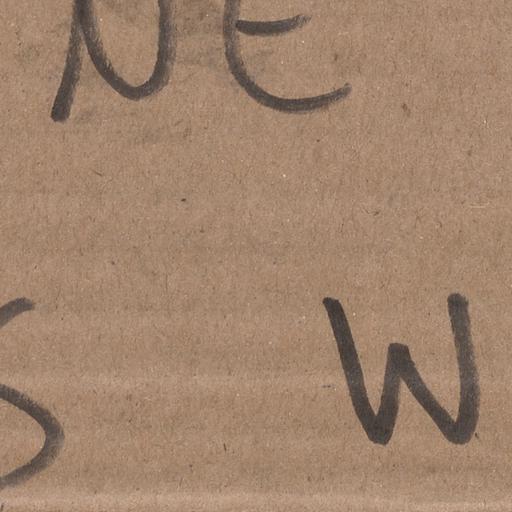 NE
S W